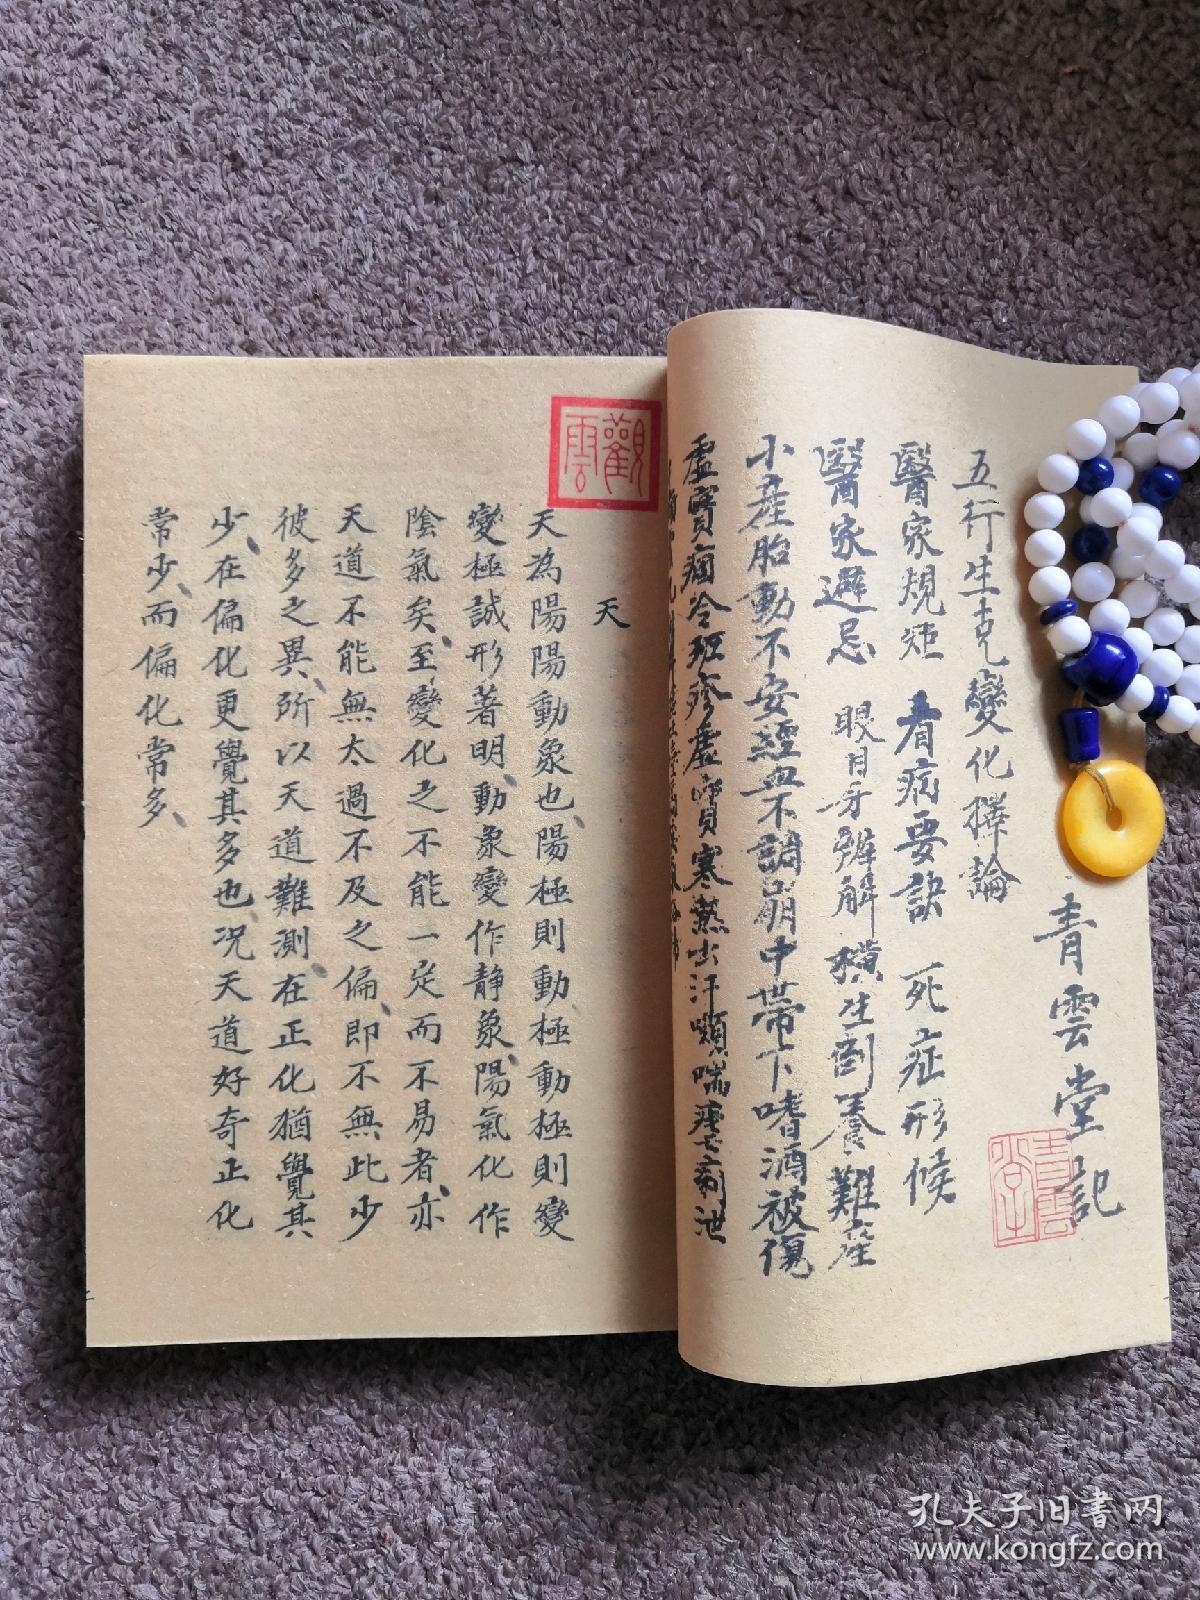 青雲堂記
五行生克變化擇論
醫家規矩 看病要訣 死症形候
醫家避忌 眼目牙辨解 橫生倒養難產
小產胎動不安經血不調崩中帶下嗜酒被傷
虛實痼冷班疹虛實寒熱出汗喘痢泄
青雲堂
觀雲
天
天為陽陽動象也、陽極則動極動極則變
變極誠形著明、動象變作静象、陽氣化作
陰氣矣、至變化之不能一定而不易者、亦
天道不能無太過不及之偏、即不無此少
彼多之異、所以天道難測、在正化猶覺其
少、在偏化更覺其多也、况天道好奇正化
常少、而偏化常多、
孔夫子旧書网
www.kongfz.com